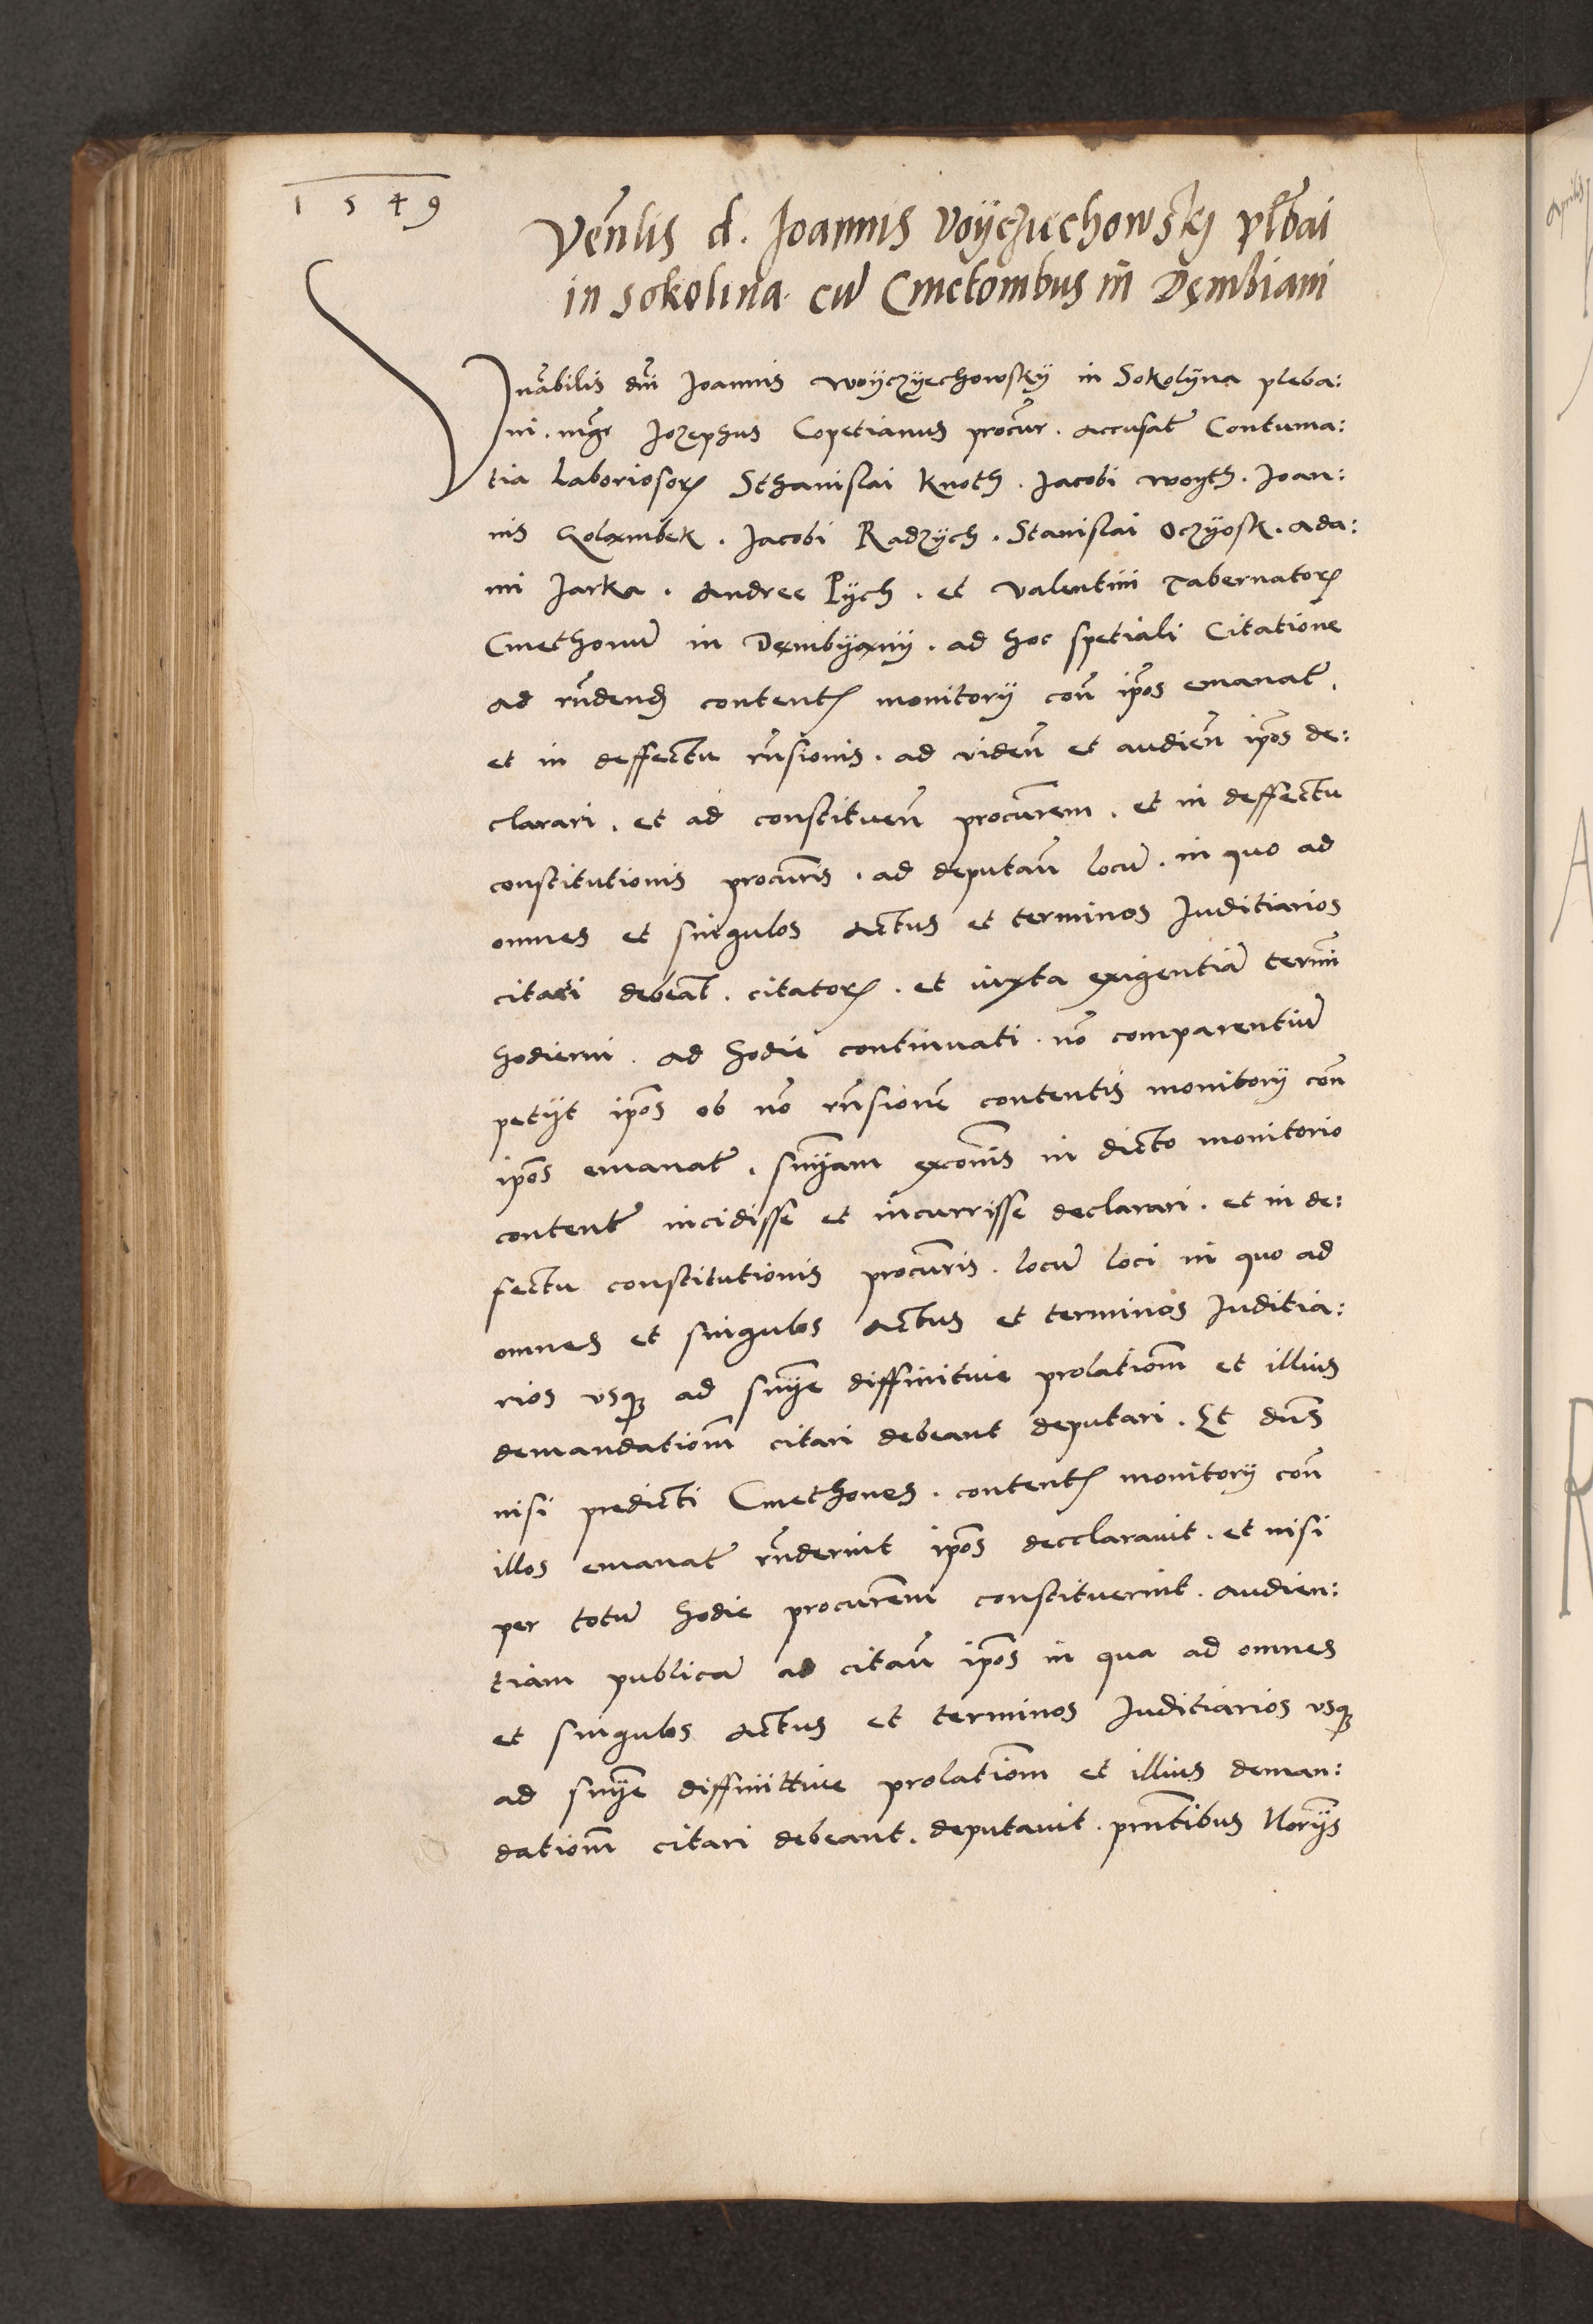 1549
Venlis d. Joannis Voyczuechowskj plbai
in Sokolina cu Cmetonibus in Dęmbiani
Vnabilis dni Joannis Woyczyechowsky in Sokolyna pleba:
ni. mgr Jozephus Copetianus procur. accusat Contuma:
tia Laboriosor Sthanislai Knoth. Jacobi Woyth. Joan:
nis Golambek. Jacobi Radzych. Stanislai Oczyosk. Ada:
mi Jarka. Andree Pych. et Valentini Tabernator
Cmethonu in Dembyany. ad hoc spetiali Citatione
ad rndend content monitory con ipos emanat.
et in deffectu rnsionis. ad viden et audien ipos de:
clarari. et ad constituen procurem. et in deffectu
constitutionis procuris. ad deputan locu. in quo ad
omnes et singulos actus et terminos Juditiarios
citari debeat. citator. et iuxta exigentia termi
hodierni. ad hodie continuati. no comparentiu
petyt ipos ob no rnsione contentis monitory con
ipos emanat. sniam exconis in dicto monitorio
content incidisse et incurrisse declarari. et in de:
fectu constitutionis procuris. locu loci in quo ad
omnes et singulos actus et terminos Juditia:
rios vsq ad snie diffinitiue prolationm et illius
demandationm citari debeant deputari. Et dns
nisi predicti Cmethones. content monitory con
illos emanat rnderint ipos decclarauit. et nisi
per totu hodie procurem constituerint. audien:
tiam publica ad citan ipos in qua ad omnes
et singulos actus et terminos Juditiarios vsq
ad snie diffinittiue prolationm et illius deman:
dationm citari debeant. deputauit. pntibus Norys
Aprilis
A
R